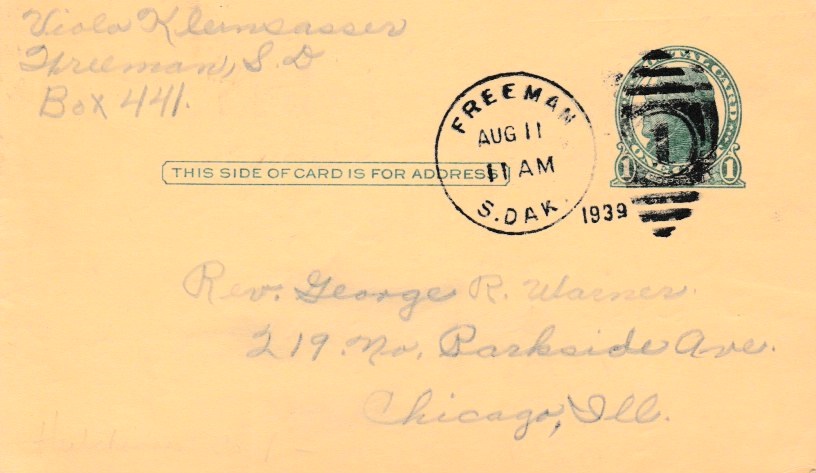 Viola Kleinsasser
Freeman, S.D
Box 441.
POSTAL CARD
1 1
FREEMAN
AUG 11
11 AM
S. DAK.
1939
1
THIS SIDE OF CARD IS FOR ADDRESS
Rev. George R. Warner.
219. No. Parkside Ave.
Chicago, Ill.